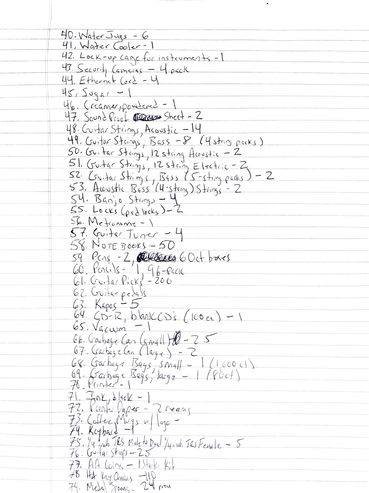 40. Water Jugs - 6
41. Water Cooler - 1
42. Lock-up cage for instruments - 1
43. Security Cameras - 4 pack
44. Ethernet Cord - 4
45. Sugar - 1
46. Creamer, powdered - 1
47. Sound Proof Sheet - 2
48. Guitar Strings, Acoustic - 14
49. Guitar Strings, Bass - 8 (4 string packs)
50. Guitar Strings, 12 string Acoustic - 2
51. Guitar Strings, 12 string Electric - 2
52. Guitar Strings, Bass (5-string packs) - 2
53. Acoustic Bass (4-string) Strings - 2
54. Banjo Strings - 4
55. Locks (padlocks) - 2
56. Metronome - 1
57. Guitar Tuner - 4
58. NOTEBOOKS - 50
59. Pens - 2, 60ct boxes
60. Pencils - 1, 96-pack
61. Guitar Picks - 200
62. Guitar pedals
63. Kapos - 5
64. CD-R, blank CD's (100ct) - 1
65. Vacuum - 1
66. Garbage Can (small) - 25
67. Garbage Can (large) - 2
68. Garbage Bags, small - 1 (1,000ct)
69. Garbage Bags, large - 1 (80ct)
70. Printer - 1
71. Ink, black - 1
72. Printer Paper - 2 reams
73. Coffee Mugs w/ logo -
74. Keyboard - 1
75. 1/4 inch TRS Male to Dual 1/4 inch TRS Female - 5
76. Guitar straps - 25
77. AA Coins - 1
78.
79.